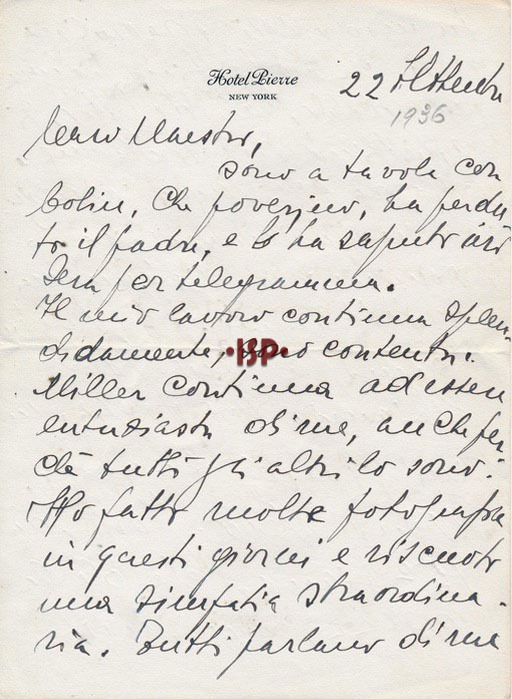 Hotel Pierre
NEW YORK
22 Settembre
1936
Caro Maestro,
sono a tavola con
Colin, che poverino, ha perdu
to il padre, e lo ha saputo ieri
sera per telegramma.
Il mio lavoro continua splen
didamente, sono contento.
·ISP·
Miller continua ad essere
entusiasta di me, anche per
chè tutti gli altri lo sono.
Ho fatto molte fotografie
in questi giorni e riscuoto
una simpatia straordina-
ria. Tutti parlano di me